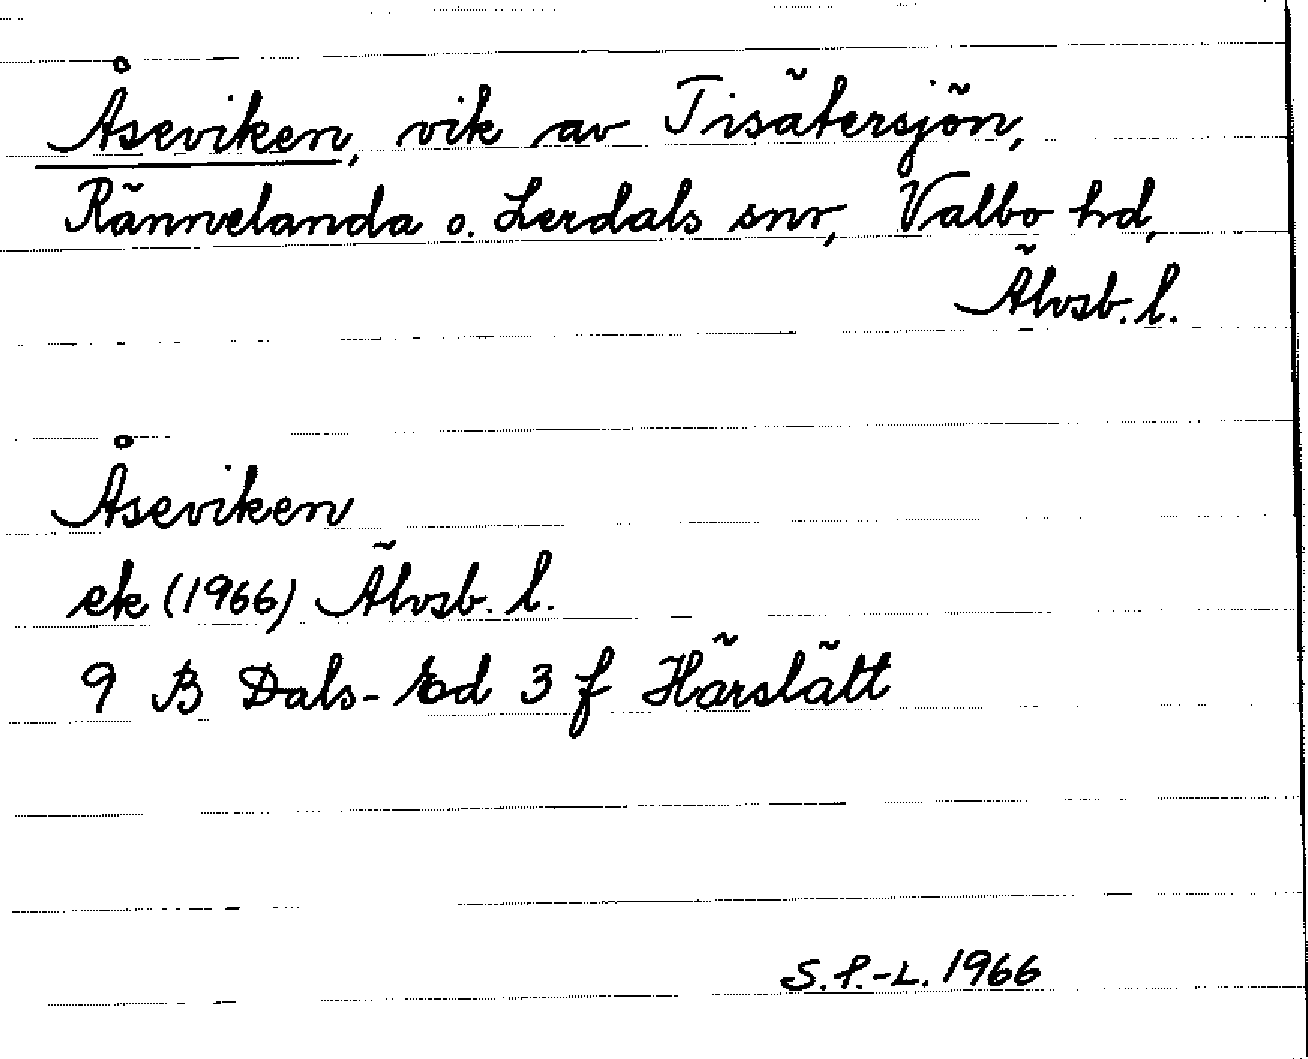 Åseviken, vik av Tisätersjön,
Rännelanda o. Lerdals snr, Valbo hd,
Älvsb. l.
Åseviken
ek (1966) Älvsb. l.
9 B Dals-Ed 3 f Härslätt
S.P.-L. 1966